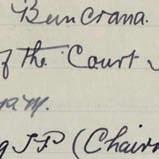 Buncrana.
of the Court
a.m.
J.P. (Chairm